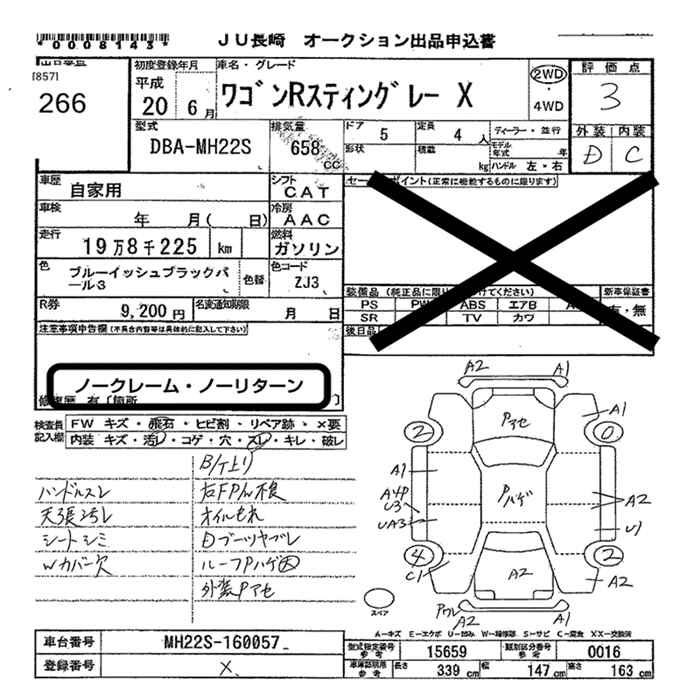 *0008143*
ＪＵ長崎 オークション出品申込書
[857]
266
初度登録年月
平成
20 6月
車名・グレード
ワゴンRスティングレー X
2WD
・
4WD
評価点
3
型式
DBA-MH22S
排気量
658 CC
ドア 5
定員 4 人
形状
積載 kg
ディーラー・並行
モデル年式 年
ハンドル 左・右
外装 内装
D C
車歴 自家用
シフト CAT
車検 年 月( 日)
冷房 AAC
走行 19万8千225 km
燃料 ガソリン
色 ブルーイッシュブラックパール3
色替
色コード ZJ3
R券 9,200円
名変通知期限 月 日
セールスポイント(正常に機能するものに限ります)
装備品 (純正品に限り
けてください)
新車保証書
PS PW ABS エアB
有・無
SR TV カワ
後日品
注意事項申告欄 (不具合内容等は具体的に記入して下さい)
ノークレーム・ノーリターン
修復歴 有 [箇所 ]
検査員記入欄
FW キズ・飛石・ヒビ割・リペア跡・×要
内装 キズ・汚レ・コゲ・穴・スレ・キレ・破レ
B/T上り
ハンドルスレ
右FPん不良
天張汚レ
オイルもれ
シートシミ
Dブーツヤブレ
Wカバー欠
ルーフPハゲ大
外装Pアセ
A2 A1
Pアセ
A1
2 0
A1
A4P
U3
Pハゲ
A2
UA3
U1
4 2
C1
A2
A2
Pワレ
A2 A1
スペア
A―キズ E―エクボ U―凹み W―補修跡 S―サビ C―腐食 XX―交換済
車台番号 MH22S-160057
登録番号 X
型式指定番号 参考 15659
類別区分番号 参考 0016
車庫証明用 参考 長さ 339 cm 幅 147 cm 高さ 163 cm